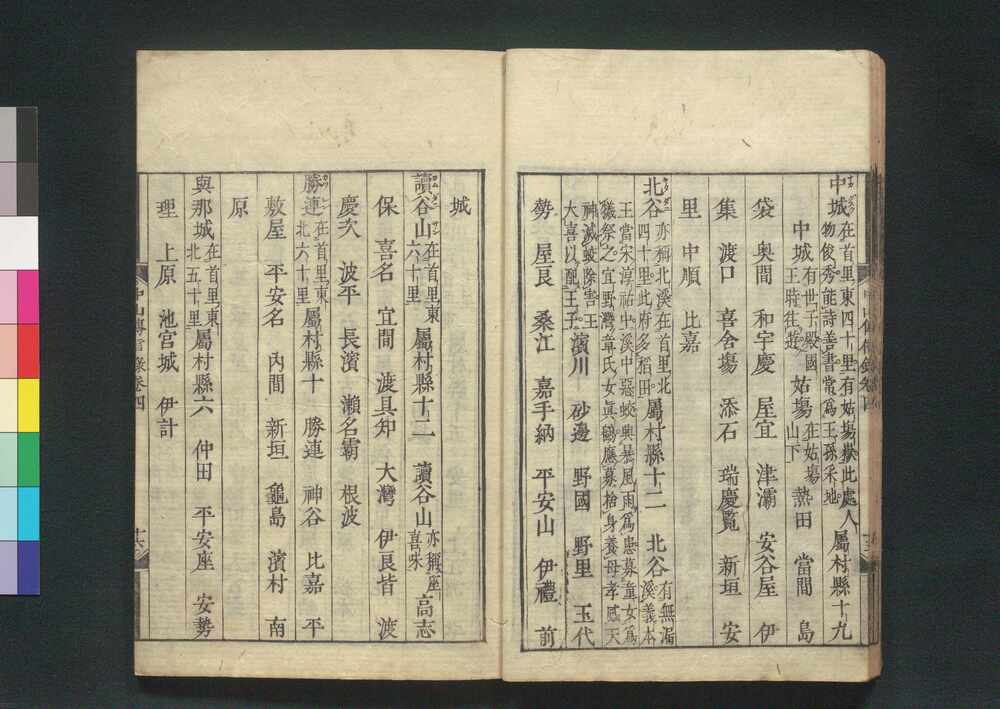 中城在首里東四十里有姑場嶽此處人物俊秀能詩善書常爲王孫采地屬村縣十九
中城有世子殿國王時往遊姑場在姑場山下熱田 當間 島
袋 奥間 和宇慶 屋宜 津灞 安谷屋 伊
集 渡口 喜舍場 添石 瑞慶覧 新垣 安
里 中順 比嘉
北谷亦稱北溪在首里北四十里此府多稻田屬村縣十二 北谷有無漏溪義本
王當宋淳祐中溪中惡蛟興暴風雨爲患募童女爲
犠祭之宜野灣章氏女眞鶴應募捨身養母孝感天
神滅蛟除害王大喜以配王子濱川 砂邊 野國 野里 玉代
勢 屋良 桑江 嘉手納 平安山 伊禮 前
城
讀谷山在首里東六十里屬村縣十二 讀谷山亦稱座喜味高志
保 喜名 宜間 渡具知 大灣 伊良皆 渡
慶次 波平 長濱 瀬名霸 根波
勝連在首里東北六十里屬村縣十 勝連 神谷 比嘉 平
敷屋 平安名 內間 新垣 龜島 濱村 南
原
與那城在首里東北五十里屬村縣六 仲田 平安座 安勢
理 上原 池宮城 伊計
中山傳信錄卷四
十六